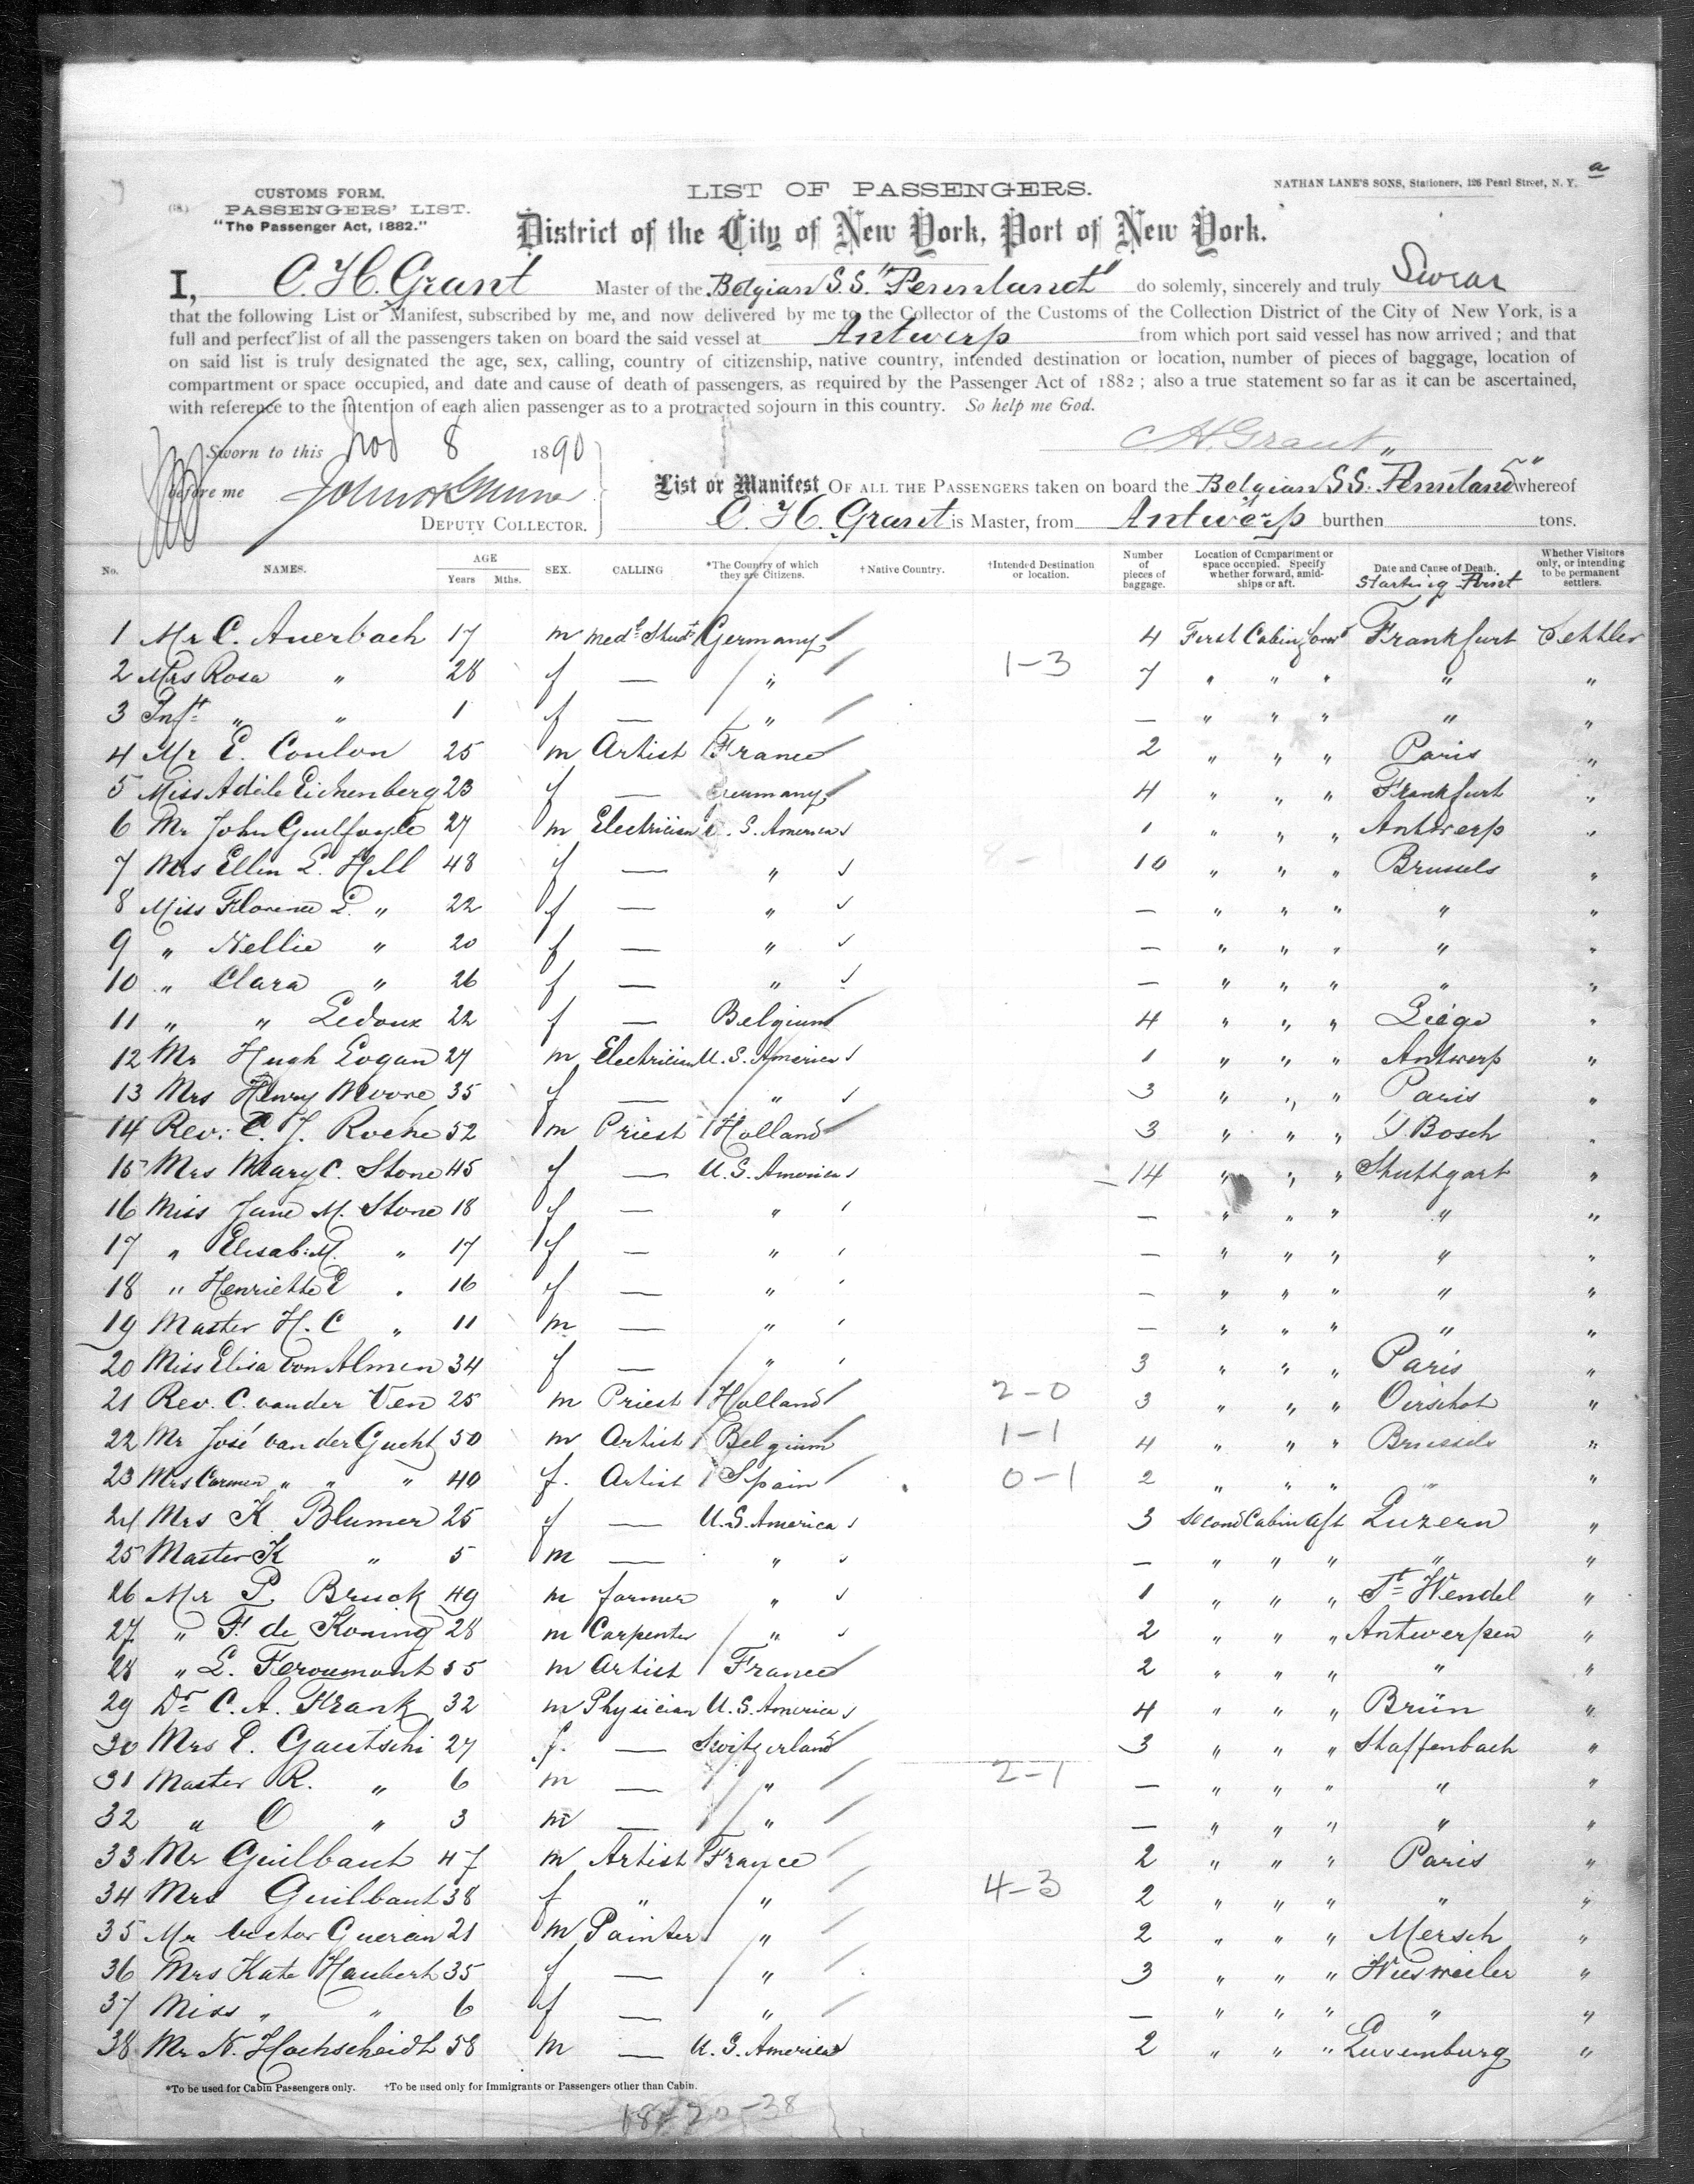 a
CUSTOMS FORM.
PASSENGERS' LIST.
"The Passenger Act, 1882."
LIST OF PASSENGERS.
NATHAN LANE'S SONS, Stationers, 126 Pearl Street, N. Y.
District of the City of New York, Port of New York.
I, C. H. Grant Master of the Belgian S.S. "Pennland" do solemnly, sincerely and truly Swear
that the following List or Manifest, subscribed by me, and now delivered by me to the Collector of the Customs of the Collection District of the City of New York, is a
full and perfect list of all the passengers taken on board the said vessel at Antwerp from which port said vessel has now arrived ; and that
on said list is truly designated the age, sex, calling, country of citizenship, native country, intended destination or location, number of pieces of baggage, location of
compartment or space occupied, and date and cause of death of passengers, as required by the Passenger Act of 1882 ; also a true statement so far as it can be ascertained,
with reference to the intention of each alien passenger as to a protracted sojourn in this country. So help me God.
Sworn to this Nov 8 1890
C H Grant
before me
DEPUTY COLLECTOR.
List or Manifest OF ALL THE PASSENGERS taken on board the Belgian S.S. Pennland whereof
C. H. Grant is Master, from Antwerp burthen tons.
No. NAMES. AGE Years Mths. SEX. CALLING *The Country of which they are Citizens. †Native Country. †Intended Destination or location. Number of pieces of baggage. Location of Compartment or space occupied. Specify whether forward, amidships or aft. Date and Cause of Death. Starting Point Whether Visitors only, or intending to be permanent settlers.
1 Mr C. Auerbach 17 m Med. Studt Germany 4 First Cabin forwd Frankfurt Settler
2 Mrs Rosa " 28 f — " 1-3 7 " " " " "
3 Inft " " 1 f — " — " " " " "
4 Mr E. Coulon 25 m Artist France 2 " " " Paris "
5 Miss Adile Eichenberg 23 f — Germany 4 " " " Frankfurt "
6 Mr John Guilfoyle 27 m Electrician U. S. America 1 " " " Antwerp "
7 Mrs Ellen E. Hill 48 f — " 10 " " " Brussels "
8 Miss Florence E. " 22 f — " — " " " " "
9 " Nellie " 20 f — " — " " " " "
10 " Clara " 26 f — " — " " " " "
11 " " Ledoux 22 f — Belgium 4 " " " Liége "
12 Mr Hugh Logan 27 m Electrician U. S. America 1 " " " Antwerp "
13 Mrs Henry Moore 35 f — " 3 " " " Paris "
14 Rev. C. J. Roche 52 m Priest Holland 3 " " " Bosch "
15 Mrs Mary C. Stone 45 f — U. S. America 14 " " " Stuttgart "
16 Miss Jane M. Stone 18 f — " — " " " " "
17 " Elisab. M. " 17 f — " — " " " " "
18 " Henriette E " 16 f — " — " " " " "
19 Master H. C " 11 m — " — " " " " "
20 Miss Elisa von Almen 34 f — " 3 " " " Paris "
21 Rev. C. van der Ven 25 m Priest Holland 2-0 3 " " " Oirschot "
22 Mr José van der Gucht 50 m Artist Belgium 1-1 4 " " " Brussels "
23 Mrs Carmen " " " 40 f. Artist Spain 0-1 2 " " " " "
24 Mrs K Blumer 25 f — U.S. America 3 Second Cabin aft Luzern "
25 Master K " 5 m — " — " " " " "
26 Mr P. Bruck 49 m farmer " 1 " " " St Wendel "
27 " F. de Koning 28 m Carpenter " 2 " " " Antwerpen "
28 " L. Feroumont 55 m Artist France 2 " " " " "
29 Dr C. A. Frank 32 m Physician U. S. America 4 " " " Brün "
30 Mrs E. Gautschi 27 f. — Switzerland 3 " " " Staffenbach "
31 Master R. " 6 m — " 2-1 — " " " " "
32 " O " 3 m — " — " " " " "
33 Mr Guilbaut 47 m Artist France 2 " " " Paris "
34 Mrs Guilbaut 38 f " " 4-3 2 " " " " "
35 Mr Victor Guerin 21 m Painter " 2 " " " Mersch "
36 Mrs Kate Haubert 35 f — " 3 " " " Wiesweiler "
37 Miss " " 6 f — " — " " " " "
38 Mr N. Hochscheidt 58 m — U. S. America 2 " " " Luxemburg "
*To be used for Cabin Passengers only. †To be used only for Immigrants or Passengers other than Cabin.